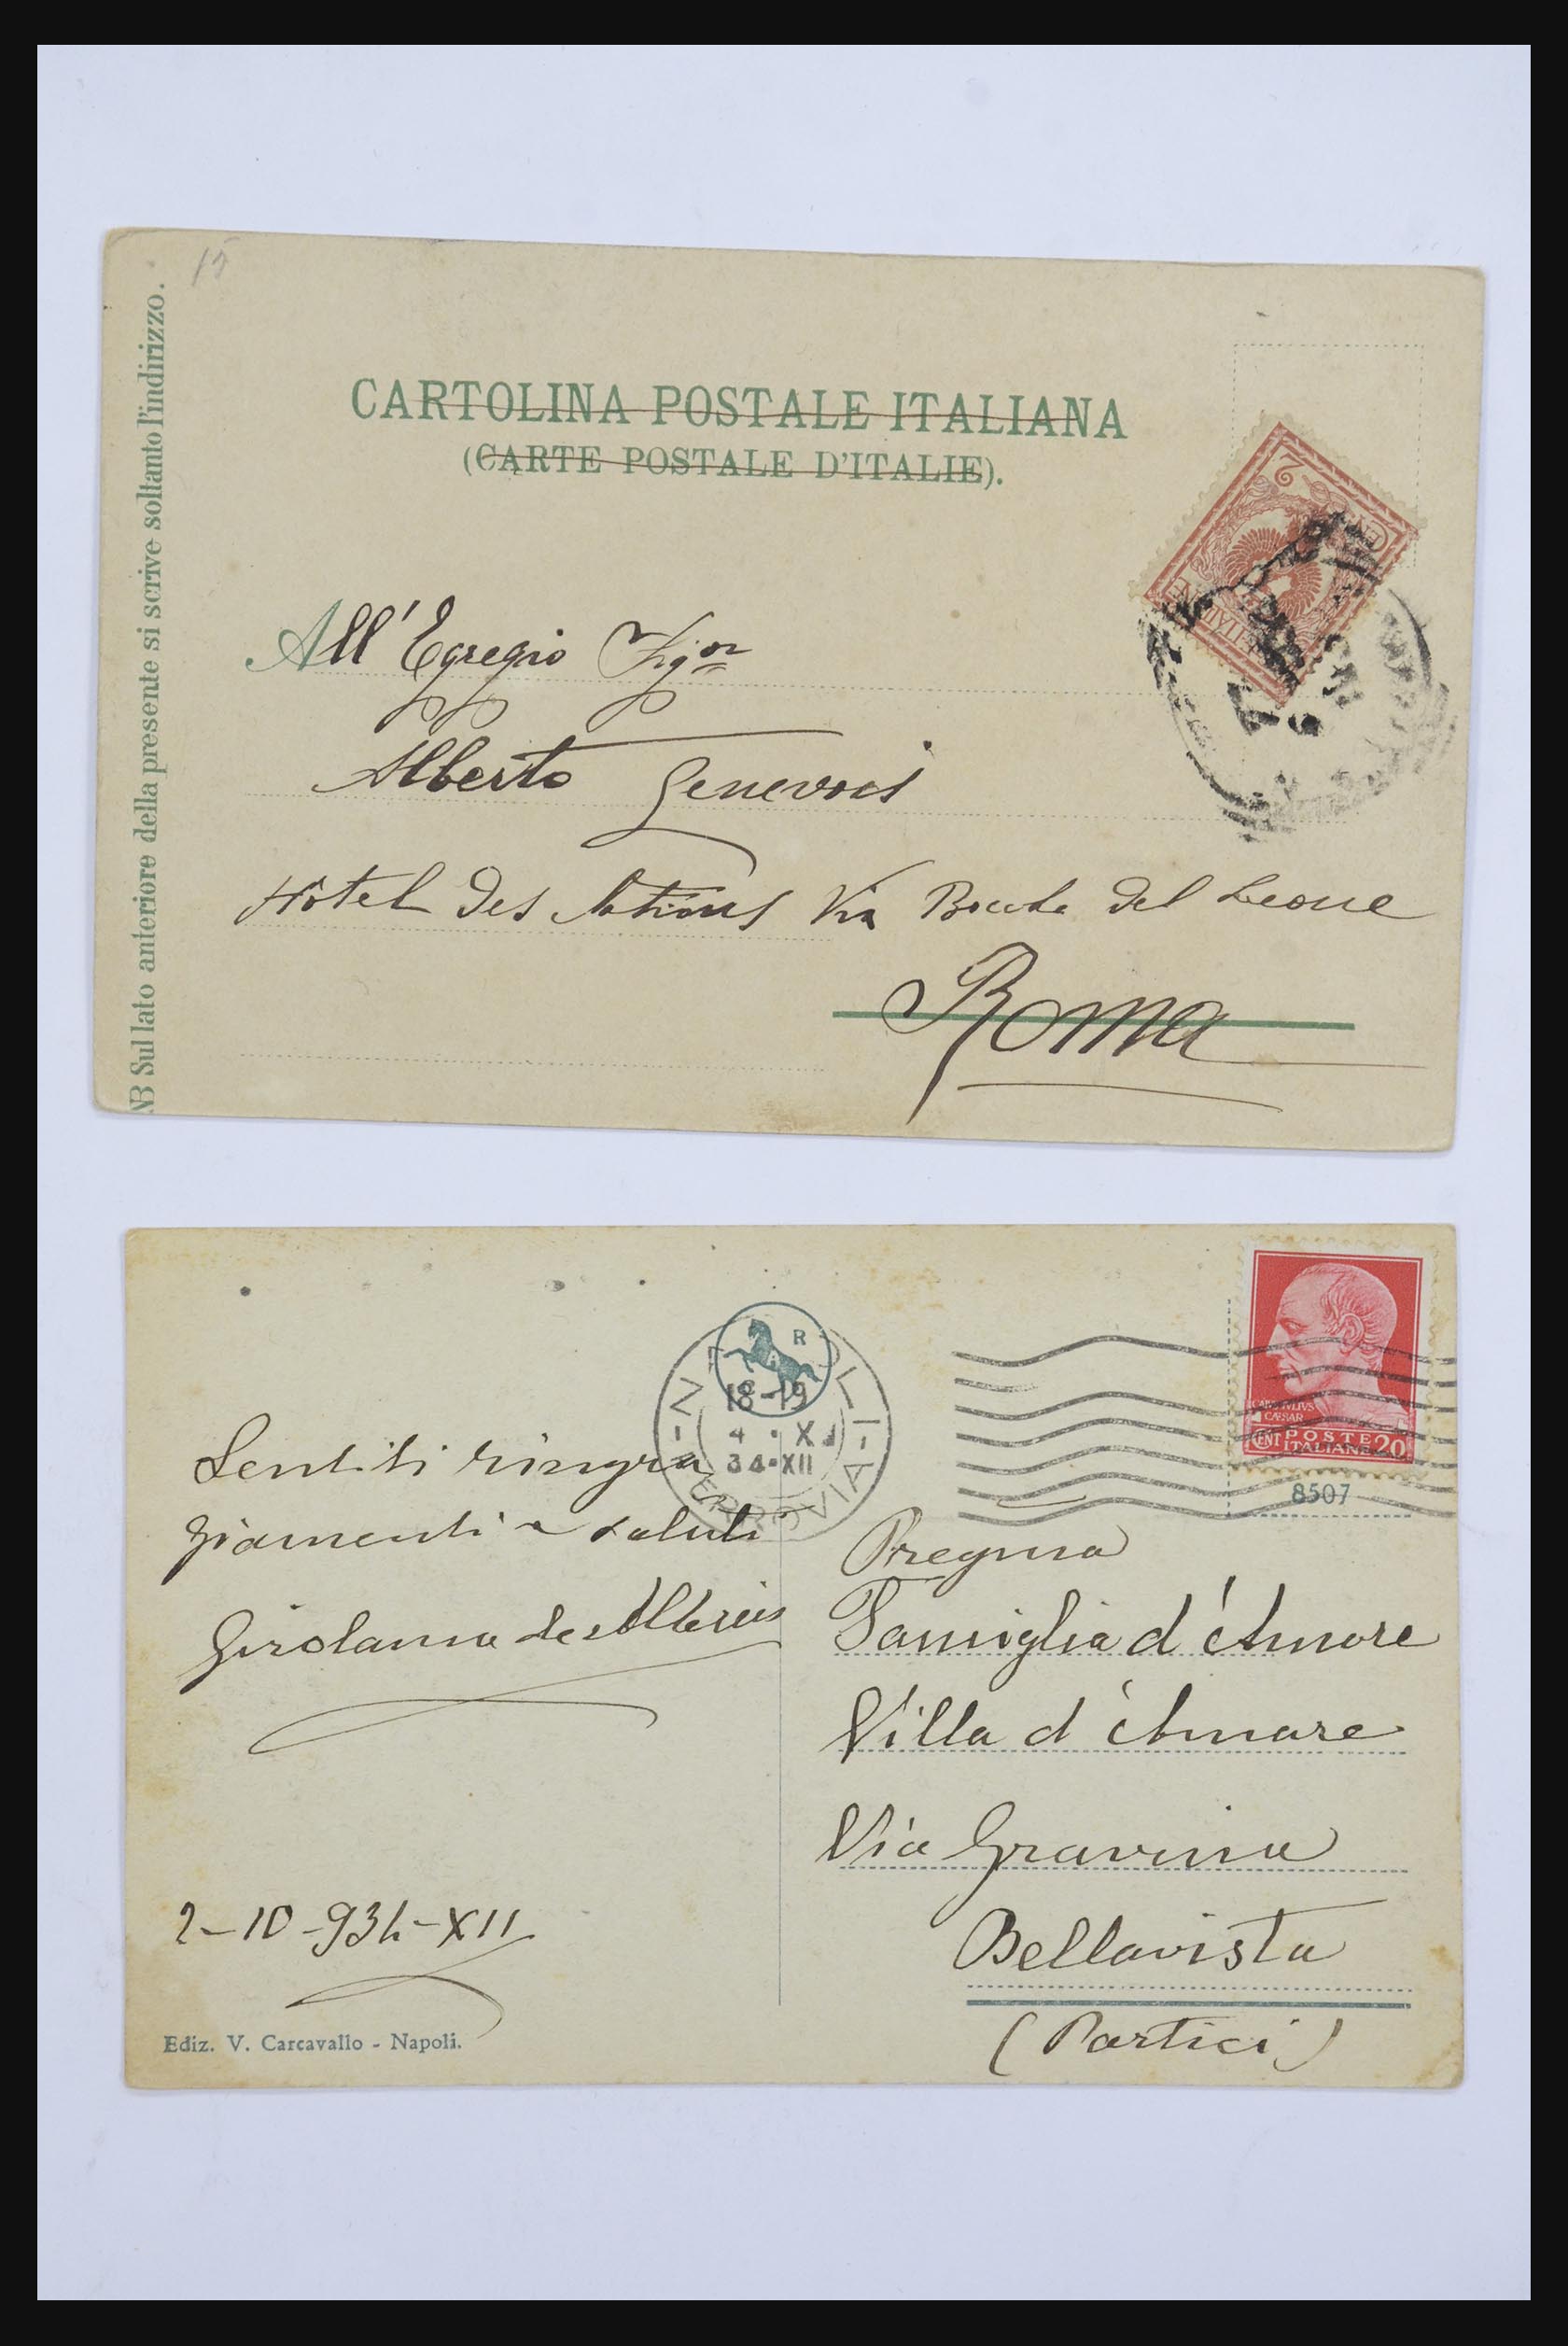 15
NB Sul lato anteriore della presente si scrive soltanto l'indirizzo.
CARTOLINA POSTALE ITALIANA
(CARTE POSTALE D'ITALIE).
2
All' Egregio Sigor
Alberto Genevois
Hôtel des Nations Via Bocca del Leone
Roma
R
A
NAPOLI
18-19
4 · X
34·XII
FERROVIA
CAIVS IVLIVS
CAESAR
CENT POSTE 20
ITALIANE
8507
Sentiti ringra
ziamenti e saluti
Girolama de
2-10-934-XII
Ediz. V. Carcavallo - Napoli.
Pregma
Famiglia d'Amore
Villa d'Amore
Via Gravina
Bellavista
(Portici)